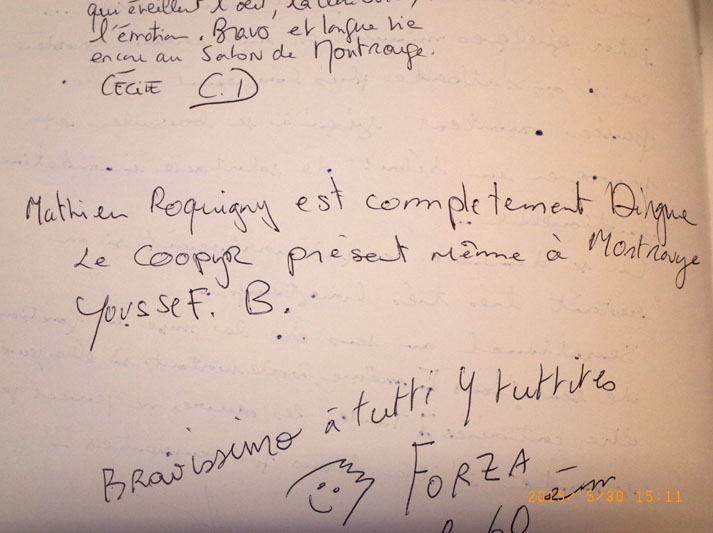 qui éveillent l'oeil,
l'émotion. Bravo et longue vie
encore au Salon de Montrouge.
CÉCILE C.D
Mathieu Roquigny est completement Dingue
Le COOPYR présent même à Montrouge
YoussEF. B.
BRavissimo à tutti y tuttites
FORZA
2015/ 5/30 15:11
60